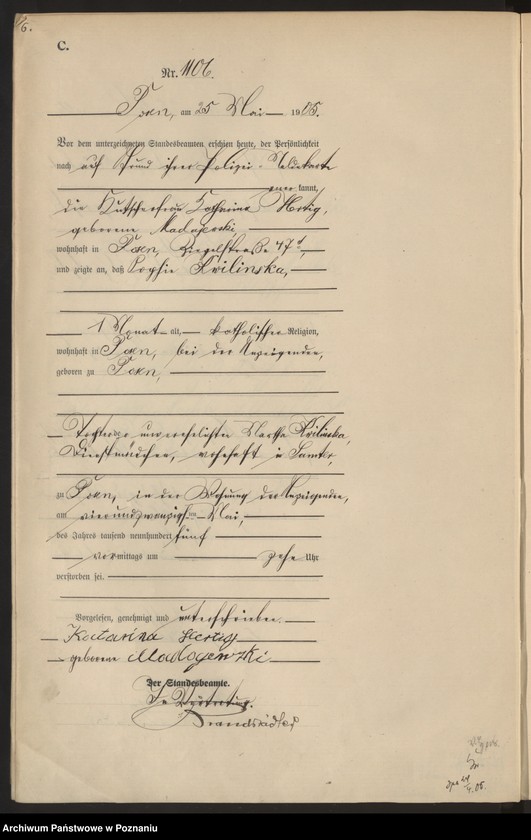 C.
Nr. 1106.
Posen, am 25 Mai 1905.
Vor dem unterzeichneten Standesbeamten erschien heute, der Persönlichkeit
nach auf Grund ihrer Polizei-Meldekarte
kannt,
die Kutscherfrau Katharina Hertig,
geborene
wohnhaft in Posen,
und zeigte an, daß Sophie Kvilinska,
1 Monat alt, katholischer Religion,
wohnhaft in Posen, bei der Anzeigenden,
geboren zu Posen,
Tochter der unverehelichten Martha Kvilinska,
Dienstmädchen, wohnhaft in Samter,
zu Posen, in der Wohnung der Anzeigenden,
am vierundzwanzigsten Mai,
des Jahres tausend neunhundert fünf
vormittags um zehn Uhr
verstorben sei.
Vorgelesen, genehmigt und unterschrieben.
Katarina Hertig
geborene
Der Standesbeamte.
In Vertretung.
Archiwum Państwowe w Poznaniu